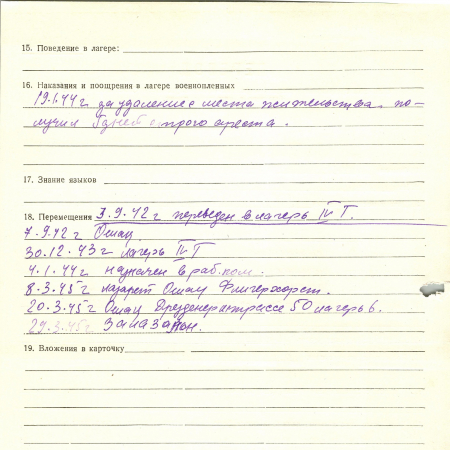 15. Поведение в лагере:
16. Наказания и поощрения в лагере военнопленных
19.1.44 г за удаление с места жительства. по-
лучил 5 дней строго ареста.
17. Знание языков
18. Перемещения 3.9.42 г переведен в лагерь IV Г.
7.9.42 г Ошац
30.12.43 г лагерь IV Г
4.1.44 г назначен в раб. ком.
8.3.45 г лазарет Ошац Флигерхорст.
20.3.45 г Ошац Дрезденерштрассе 50 лагерь 6.
29.3.45 г
19. Вложения в карточку